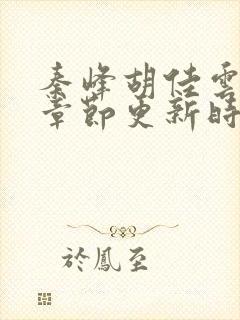 秦峰胡佳雲
章節更新時
於鳳至